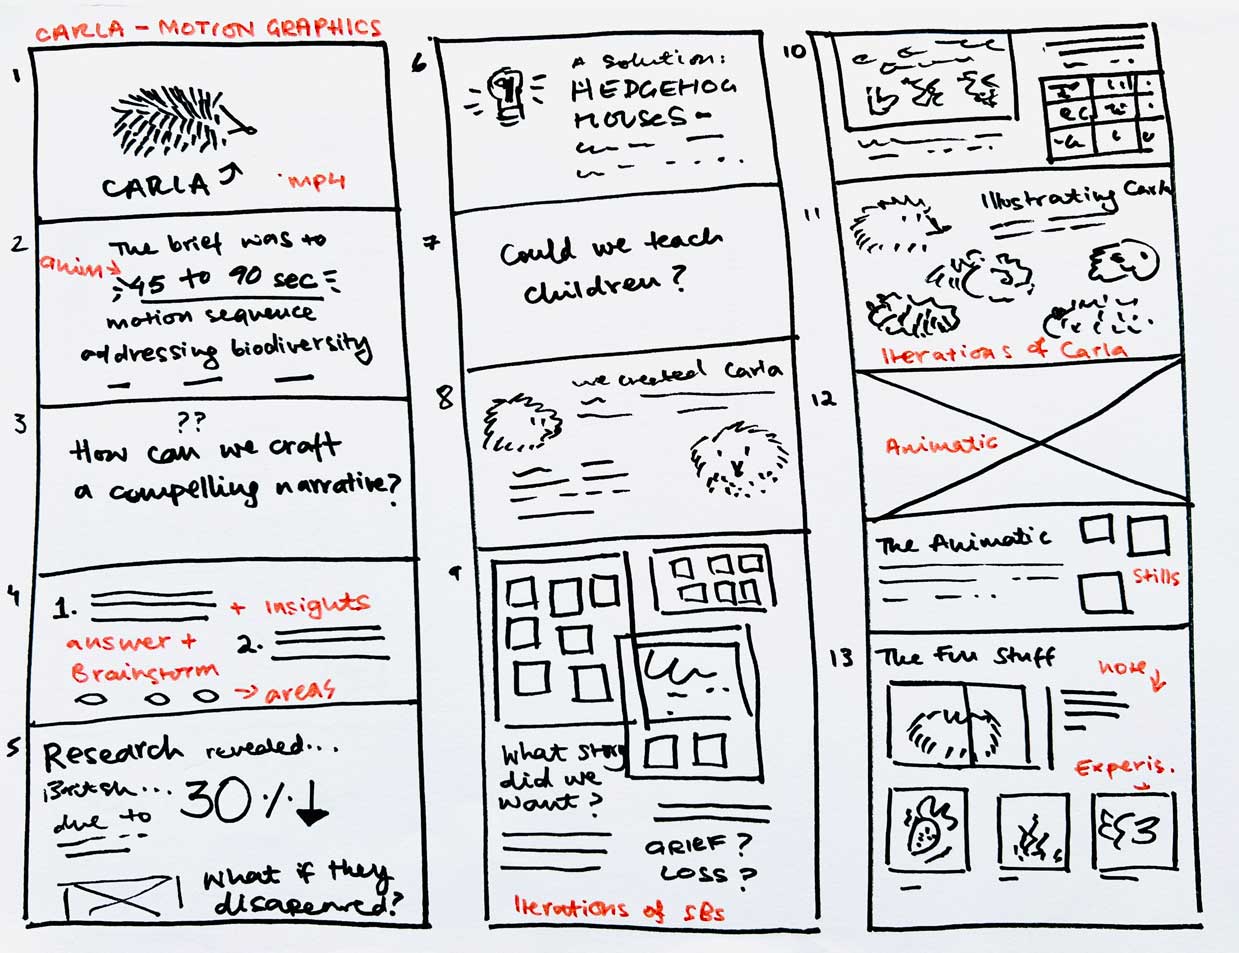 CARLA - MOTION GRAPHICS
1
CARLA
.mp4
2
The brief was to
anim
45 to 90 sec
motion sequence
addressing biodiversity
3
??
How can we craft
a compelling narrative?
4
1.
+ Insights
answer +
Brainstorm
2.
areas
5
Research revealed...
British...
due to
30%
What if they
disapeared?
6
A solution:
HEDGEHOG
HOUSES-
7
Could we teach
children?
8
we created Carla
9
What story
did we
want?
GRIEF?
LOSS?
Iterations of SBs
10
11
Illustrating Carla
Iterations of Carla
12
Animatic
The Animatic
Stills
13
The Fun Stuff
more
Experis.